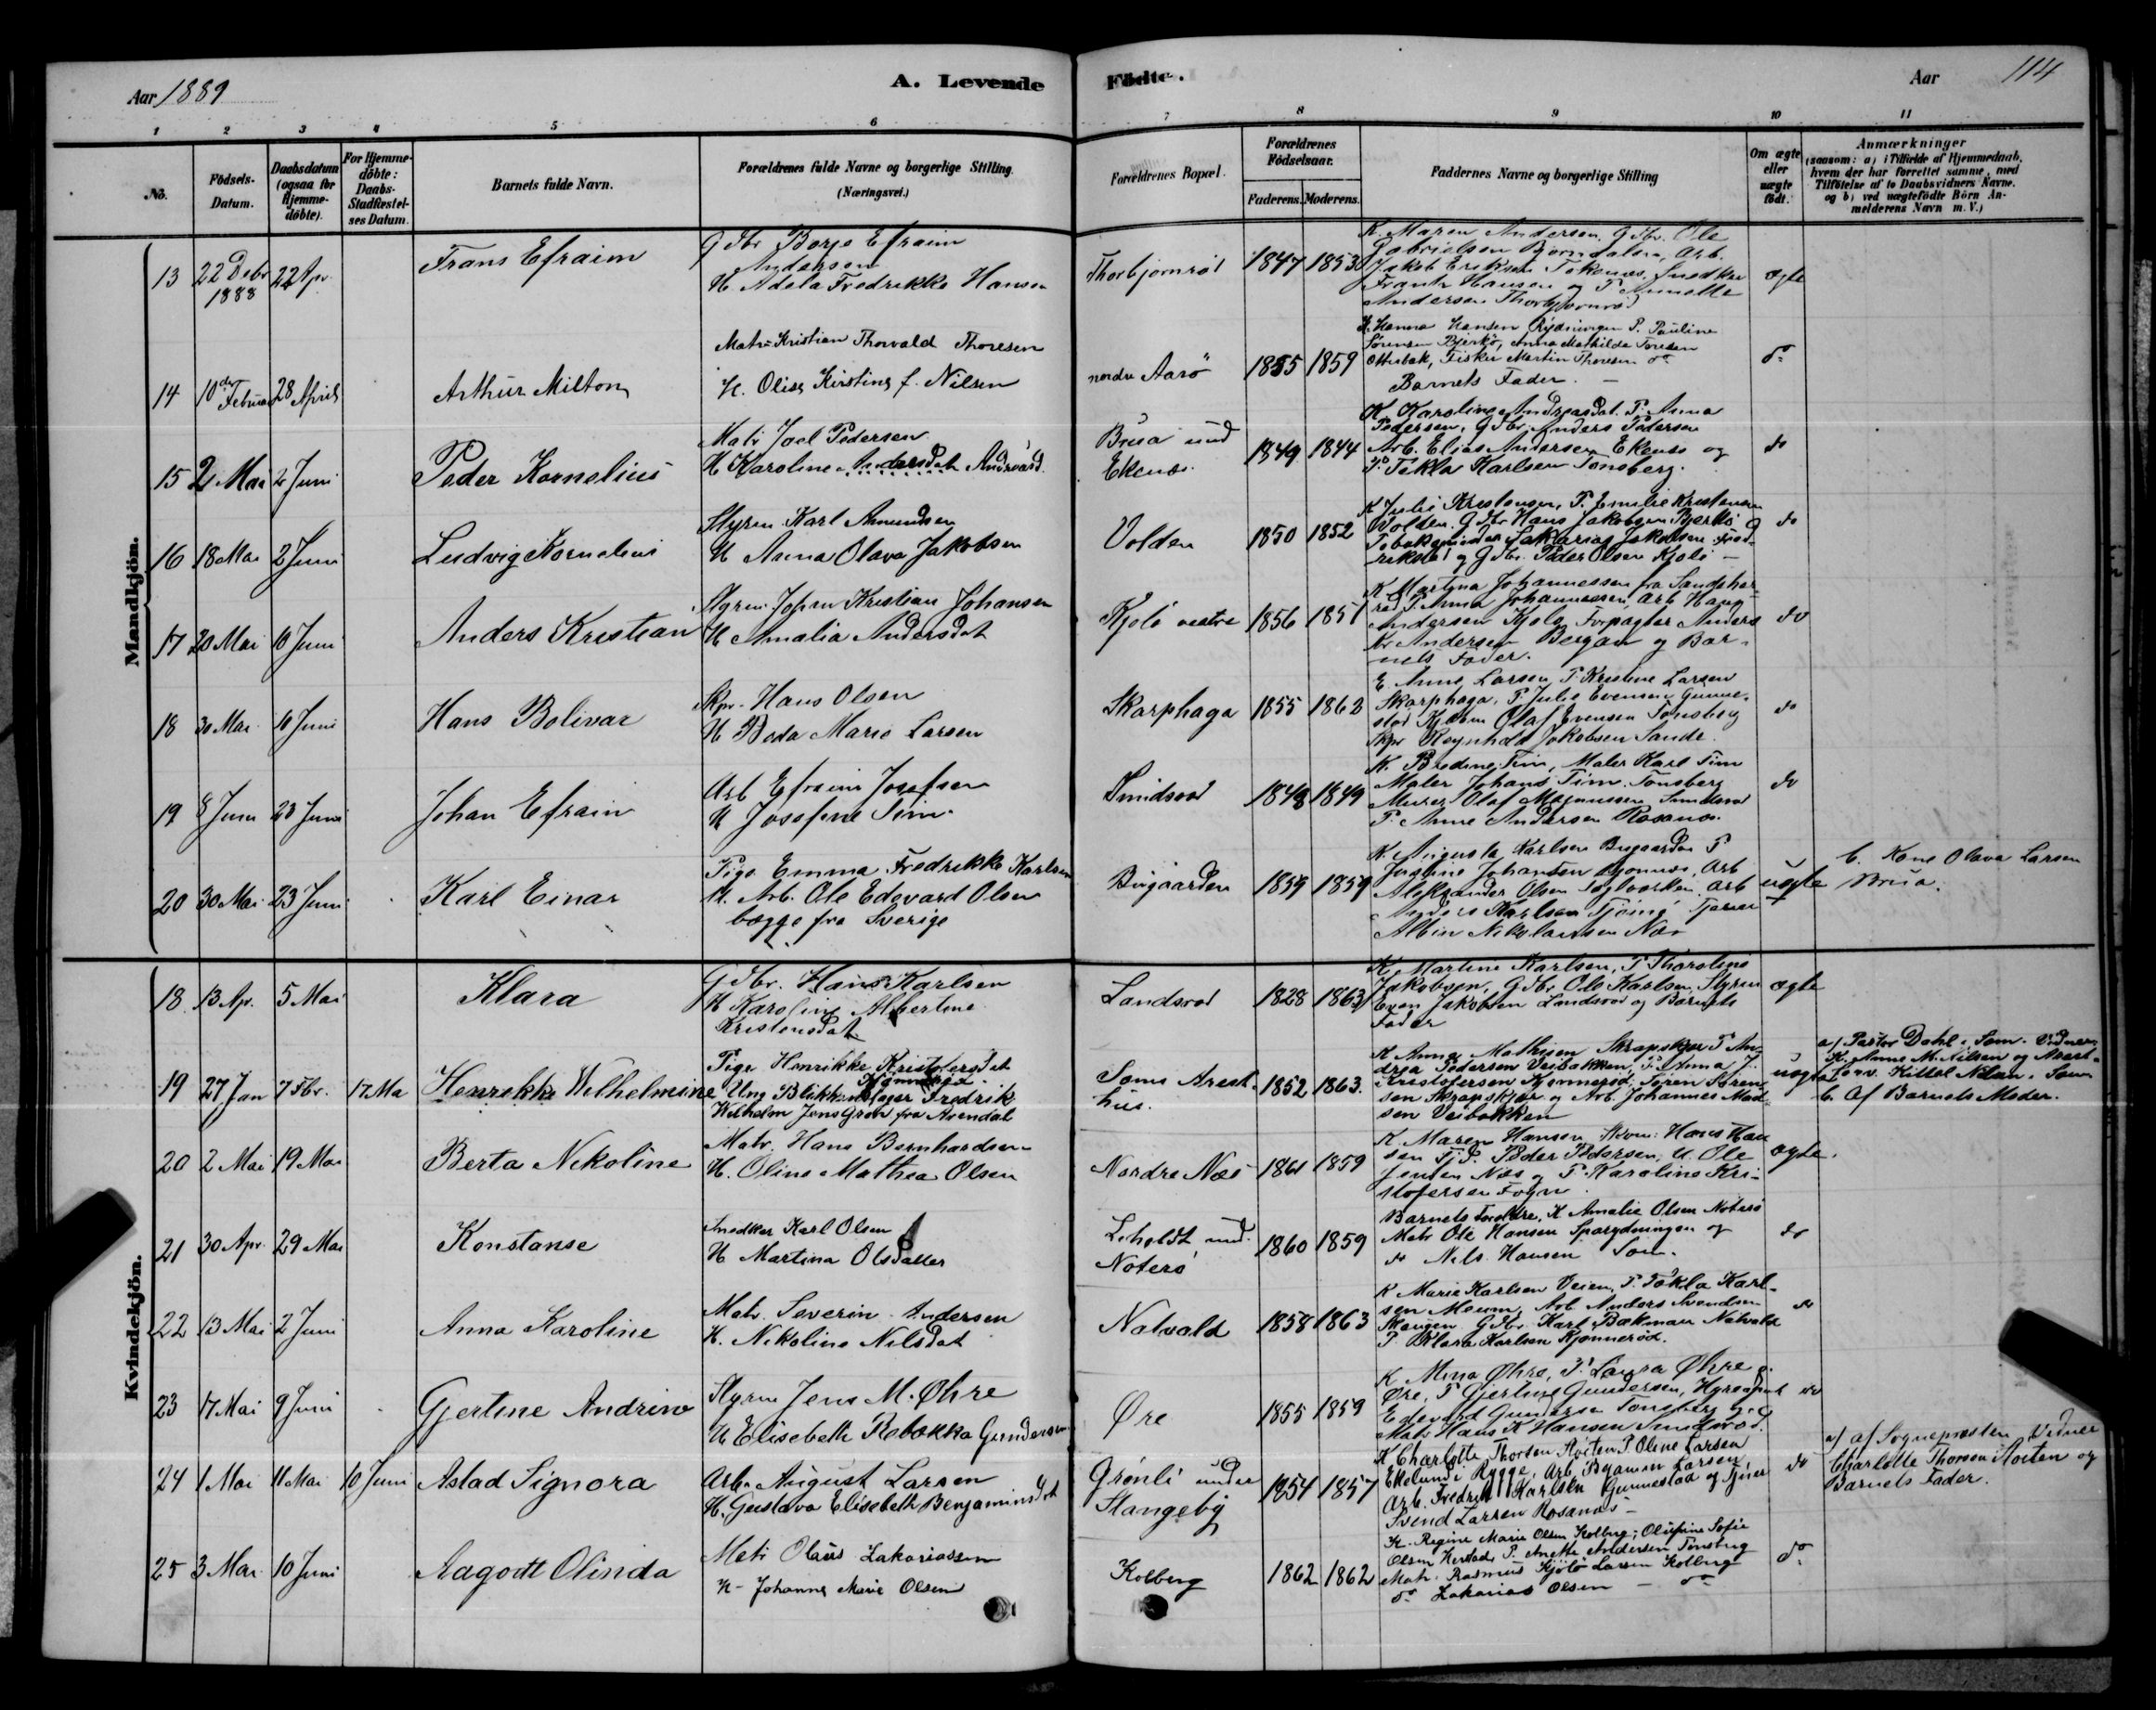 Aar 1889
A. Levende
Födte.
Aar
114
1
2
3
4
5
6
7
8
9
10
11
No.
Födsels-
Datum.
Daabsdatum
(ogsaa for
Hjemme-
döbte).
For Hjemme-
döbte:
Daabs-
Stadfæstel-
ses Datum.
Barnets fulde Navn.
Forældrenes fulde Navne og borgerlige Stilling.
(Næringsvei.)
Forældrenes Bopæl.
Forældrenes
Födselsaar.
Faderens.
Moderens.
Faddernes Navne og borgerlige Stilling
Om ægte
eller
uægte
födt.
Anmærkninger
(saasom: a) i Tilfælde af Hjemmedaab,
hvem der har forrettet samme, med
Tilföielse af to Daabsvidners Navne.
og b) ved uægtefödte Börn An-
melderens Navn m. V.)
Mandkjön.
13
22 Debr
1888
22 Apr
Frans Efraim
Gdbr Borje Efraim
Andersen
H. Adela Fredrikke Hansen
Thorbjornröd
1847
1853
K. Maren Andersen, Gdbr. Ole
Gabrielsen Bjorndalen, Arb.
Jakob Eriksen, Snedker
Frantz Hansen og P. Annette
Andersen Thorbjornröd
ægte
14
10de Februar
28 April
Arthur Milton
Matr. Kristian Thorvald Thoresen
H. Olise Kirstine f. Nilsen
nordre Aarö
1855
1859
K. Hanna Hansen Rydningen P. Pauline
Sörensen Bjerkö, Anna Mathilde Toresen
Fisker Martin Thoresen do
Barnets Fader.
do
15
2 Mai
2 Juni
Peder Kornelius
Matr Joel Pedersen
H Karoline Andersdat Andreasd.
Brua und
Ekenæs.
1849
1844
K. Karoline Andreasdat. P. Anna
Pedersen, Gdbr Anders Pedersen
Arb. Elias Andersen Ekenæs og
P. Tekla Karlsen Tonsberg.
do
16
18 Mai
2 Juni
Ludvig Kornelius
Styrm. Karl Amundsen
H Anna Olava Jakobsen
Volden
1850
1852
K Julie Kristensen, P. Emilie Kristensen
Volden. Gdbr Hans Jakobsen Bjerkö
Sakarias Jakobsen Fred-
rikshald og Gdbr. Peder Olsen Kjölö
do
17
20 Mai
10 Juni
Anders Kristian
Styrm. Johan Kristian Johansen
H Amalia Andersdat
Kjolö vestre
1856
1851
K Martina Johannessen fra Sandsher-
red P. Anna Johannessen, Arb Hans
Andersen Kjolö Forpagter Anders
Kr. Andersen Bergan og Bar-
nets Fader.
do
18
30 Mai
10 Juni
Hans Bolivar
Skpr. Hans Olsen
H Boda Marie Larsen
Skarphaga
1855
1862
E. Anne Larsen, P. Kristine Larsen
Skarphaga. P. Julie Evensen Gunne-
stad Olaf Evensen Tonsberg
Skpr Reynhold Jakobsen Sande.
do
19
8 Juni
23 Juni
Johan Efraim
Arb Efraim Josefsen
H Josefine Tim
Smidsrod
1848
1849
K. Bredine Tim, Maler Karl Tim
Maler Johans Tim Tonsberg
Murer Olaf Magnussen Smidsrod
P. Anne Andersen Rosanes.
do
20
30 Mai
23 Juni
Karl Einar
Pige Emma Fredrikke Karlsen
U. Arb. Ole Edevard Olsen
begge fra Sverige
Bugaarden
1859
1859
K. Augusta Karlsen Bugaarden P
Justine Johansen, Arb
Aleksander Olsen Teglverken Arb
Anders Karlsen Tjömö
Albin Nikolaisen Næs
uægte
b. Kone Olava Larsen
Brua.
Kvindekjön.
18.
13 Apr.
5 Mai
Klara
Gdbr. Hans Karlsen
H Karoline Albertine
Kristensdat
Landsrod
1828
1863
K. Martine Karlsen, P Thoroline
Jakobsen, Gdbr Ole Karlsen, Styrm
Even Jakobsen Landsrod og Barnets
Fader
ægte
19
27 Jan
7 Fbr.
17 Ma
Henrekke Wilhelmine
Pige Henrikke Kristofersdat
Kjonnerod
Ung Blikkenslager Fredrik
Wilhelm Jens Gron fra Arendal
Sems Arest-
hus.
1852
1863.
K Anna Mathisen Skrapskjær P An-
drea Pedersen Veibakken, P. Anna J.
Kristofersen Kjonnerod, Soren Soren-
sen Skrapskjær og Arb. Johannes Mad-
sen Veibakken
uægte
a) Pastor Dahl, Sem. Vidner
K. Anne M. Nilsen og Arest-
forv. Kittel Nilsen. Sem
b. Af Barnets Moder.
20
2 Mai
19 Mai
Berta Nikoline
Matr. Hans Bernhardsen
H. Oline Mathea Olsen
Nordre Næs
1861
1859
K. Maren Hansen, Hans Han
sen Tj. P. Peder Pedersen, U. Ole
Jensen Næs og P. Karoline Kri-
stofersen Fogn.
ægte.
21
30 Apr.
29 Mai
Konstanse
Snedker Karl Olsen
H Martina Olsdatter
Leholdt und.
Noterö
1860
1859
Barnets Foreldre, K Amalie Olsen Noterö
Matr Ole Hansen Sparydningen og
do Nils Hansen Sem.
do
22
13 Mai
2 Juni
Anna Karoline
Matr. Severin Andersen
H. Nikoline Nilsdat
Natvald
1858
1863
K Maria Karlsen Veien, P. Tekla Karl-
sen Meum, Arb Anders Svendsen
Skaugen Gdbr. Karl Bakman Natvald
P. Klara Karlsen Kjonnerod.
do
23
17 Mai
9 Juni
Gjertine Andrine
Styrm Jens M. Øhre
H Elisebeth Rebekka Gundersen
Øre
1855
1859
K Mina Øhre, P. Laura Øhre
Øre, P Gjertine Gundersen,
Edevard Gundersen Tonsberg og
Matr Hans K Hansen Smidsrod.
do
24
1 Mai
11 Mai
10 Juni
Astad Signora
Arb. August Larsen
H. Gustava Elisebeth Benjaminsdat
Grönli under
Stangeby
1854
1857
K Charlotte Thorsen Horten P. Oline Larsen
Ekelund i Rygge, Arb. Benjamin Larsen
Arb. Fredrik Karlsen Gunnestad og
Svend Larsen Rosanes
do
a) af Sognepræsten Vidner
Charlotte Thorsen Horten og
Barnets Fader.
25
3 Mai
10 Juni
Aagodt Olinda
Matr Olaus Zakariassen
H - Johanne Marie Olsen
Kolberg
1862
1862
K. Regine Marie Olsen Kolberg, Olufine Sofie
Olsen P. Anette Andersen Tonsberg
Matr. Rasmus Kjölö Larsen Kolberg
do Zakarias Olsen - do
do